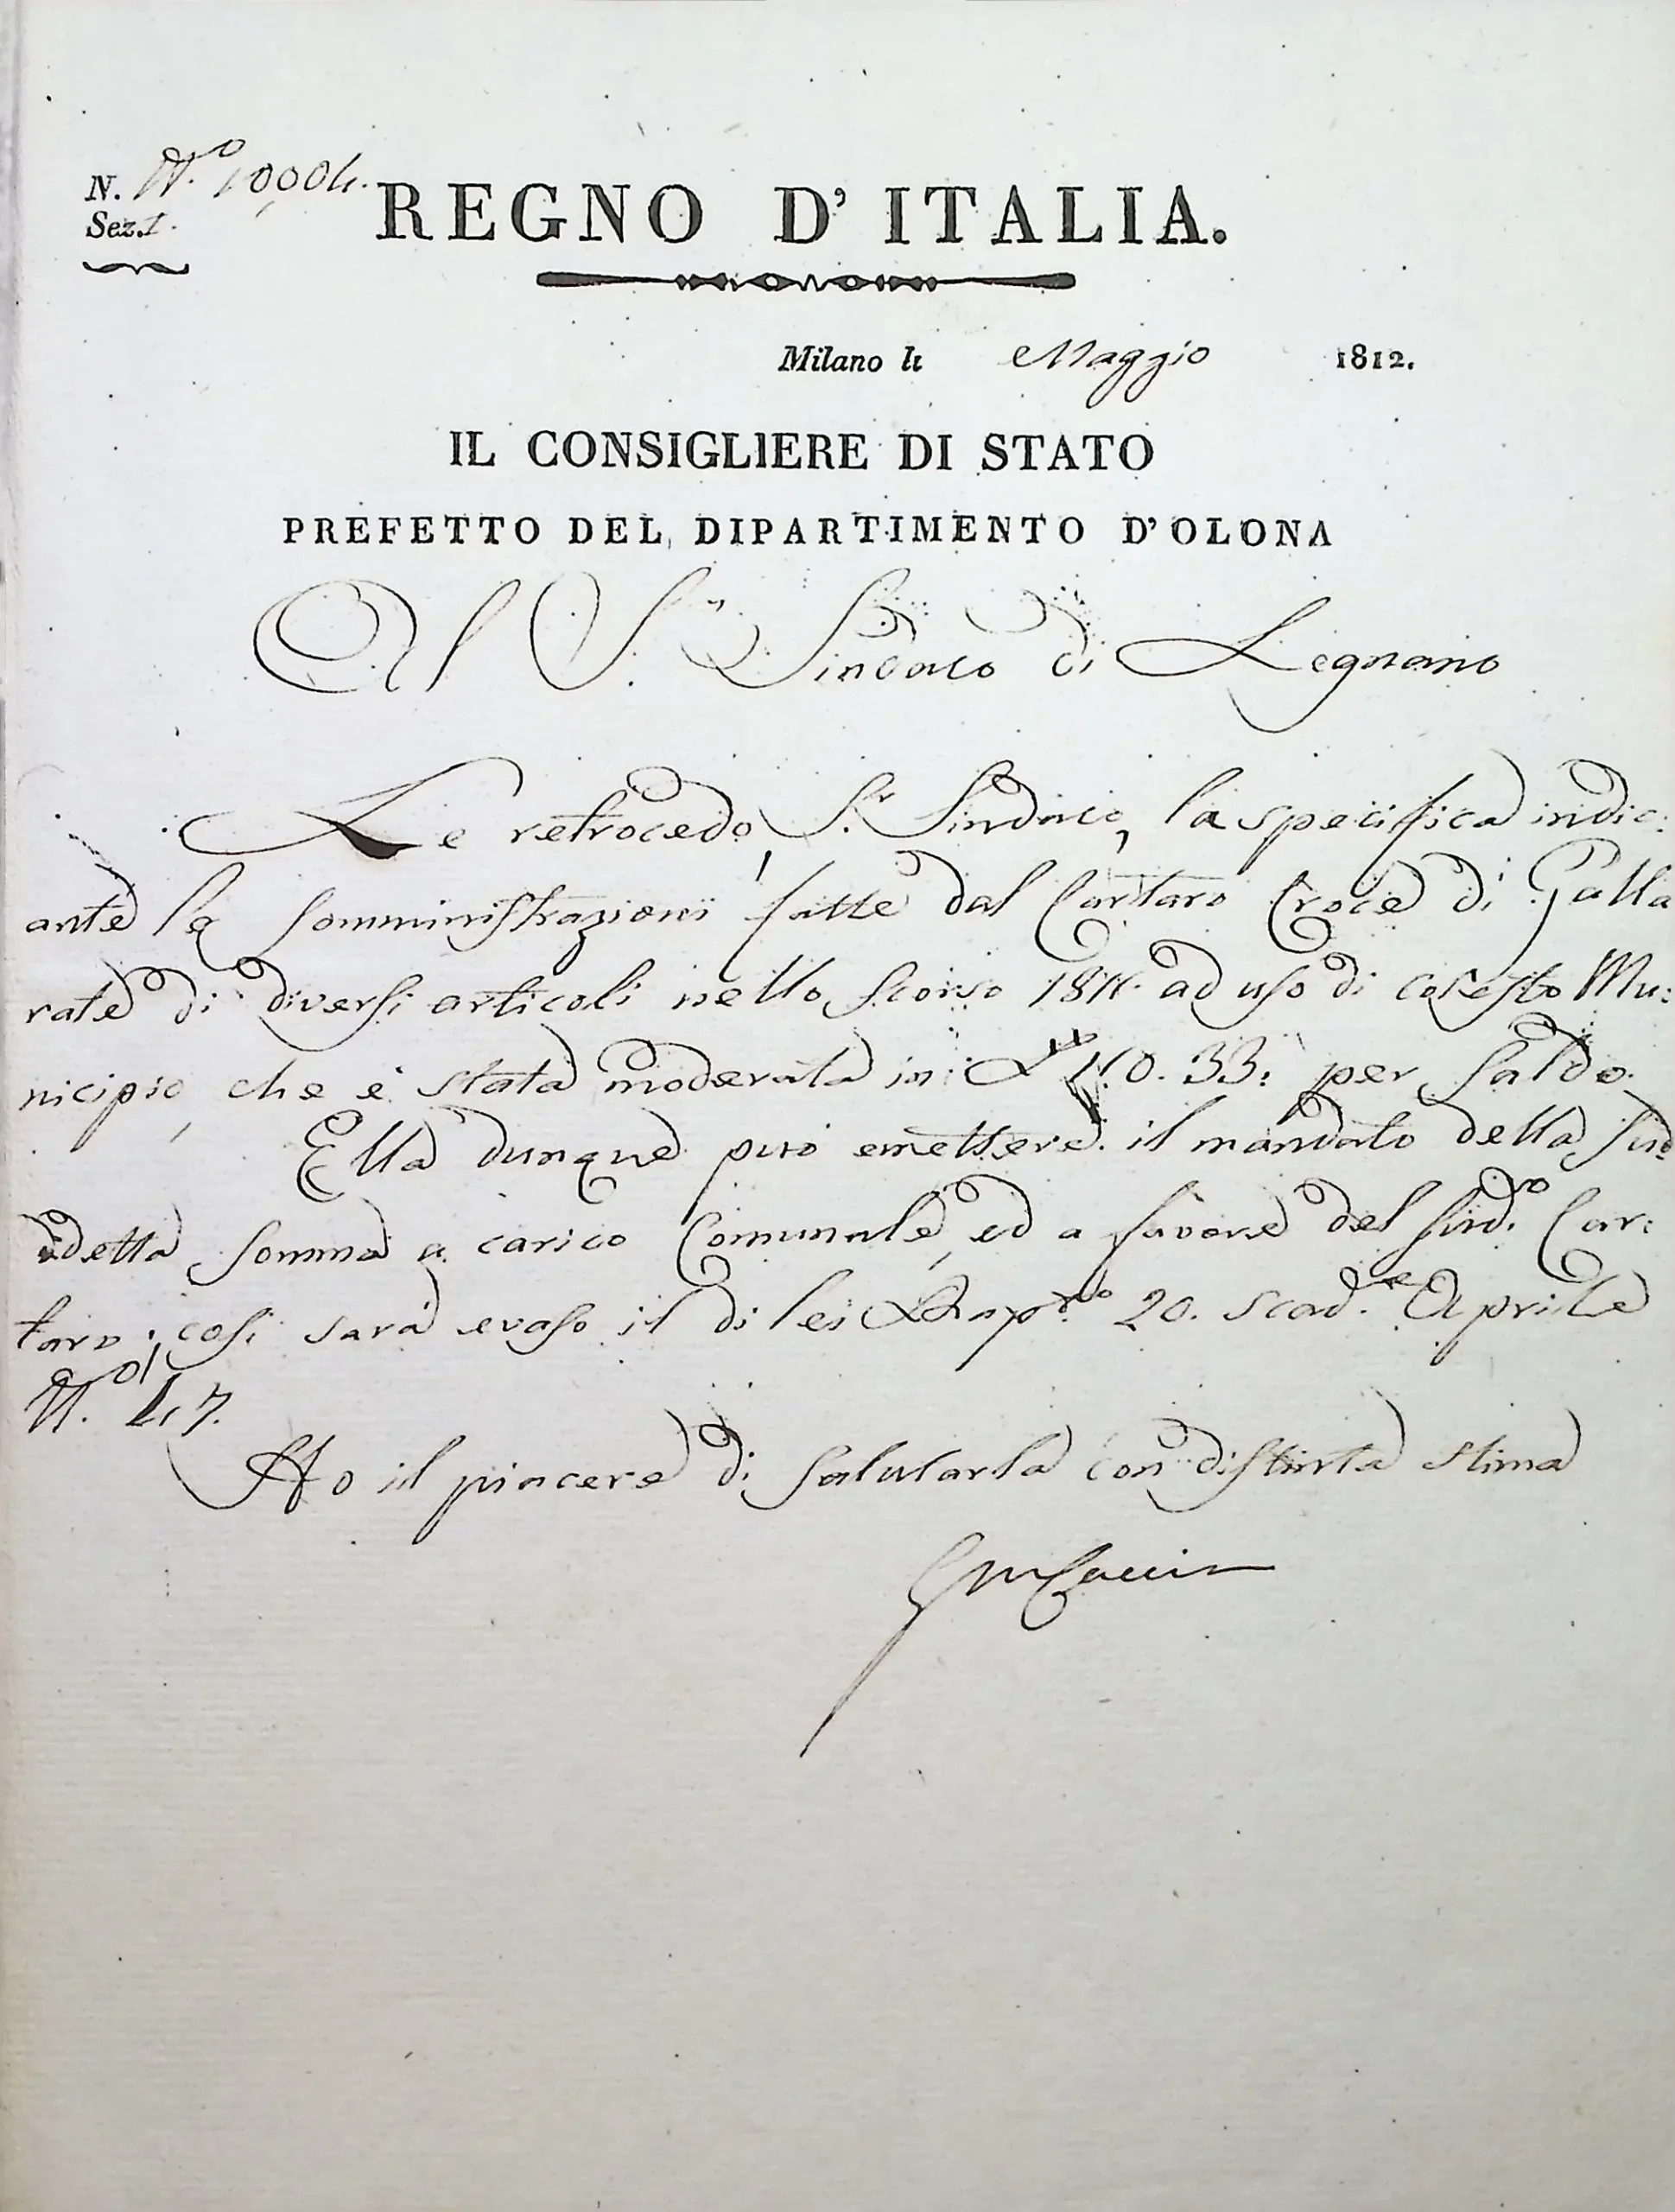 N. N.º 10004.
Sez. 1.
REGNO D' ITALIA.
Milano li Maggio 1812.
IL CONSIGLIERE DI STATO
PREFETTO DEL DIPARTIMENTO D' OLONA
Al S.r Sindaco di Legnano
Le retrocedo, S.r Sindaco, la specifica indic:
ante le somministrazioni fatte dal Cartaro Croce di Galla
rate di diversi articoli nello scorso 1811. ad uso di codesto Mu:
nicipio, che è stata moderata in per saldo.
Ella dunque può emettere il mandato della sud
detta somma a carico Comunale, ed a favore del sud.º Car:
taro; così sarà evaso il di lei Rapp.to 20. scad.e Aprile
N.º 47.
Ho il piacere di salutarla con distinta stima